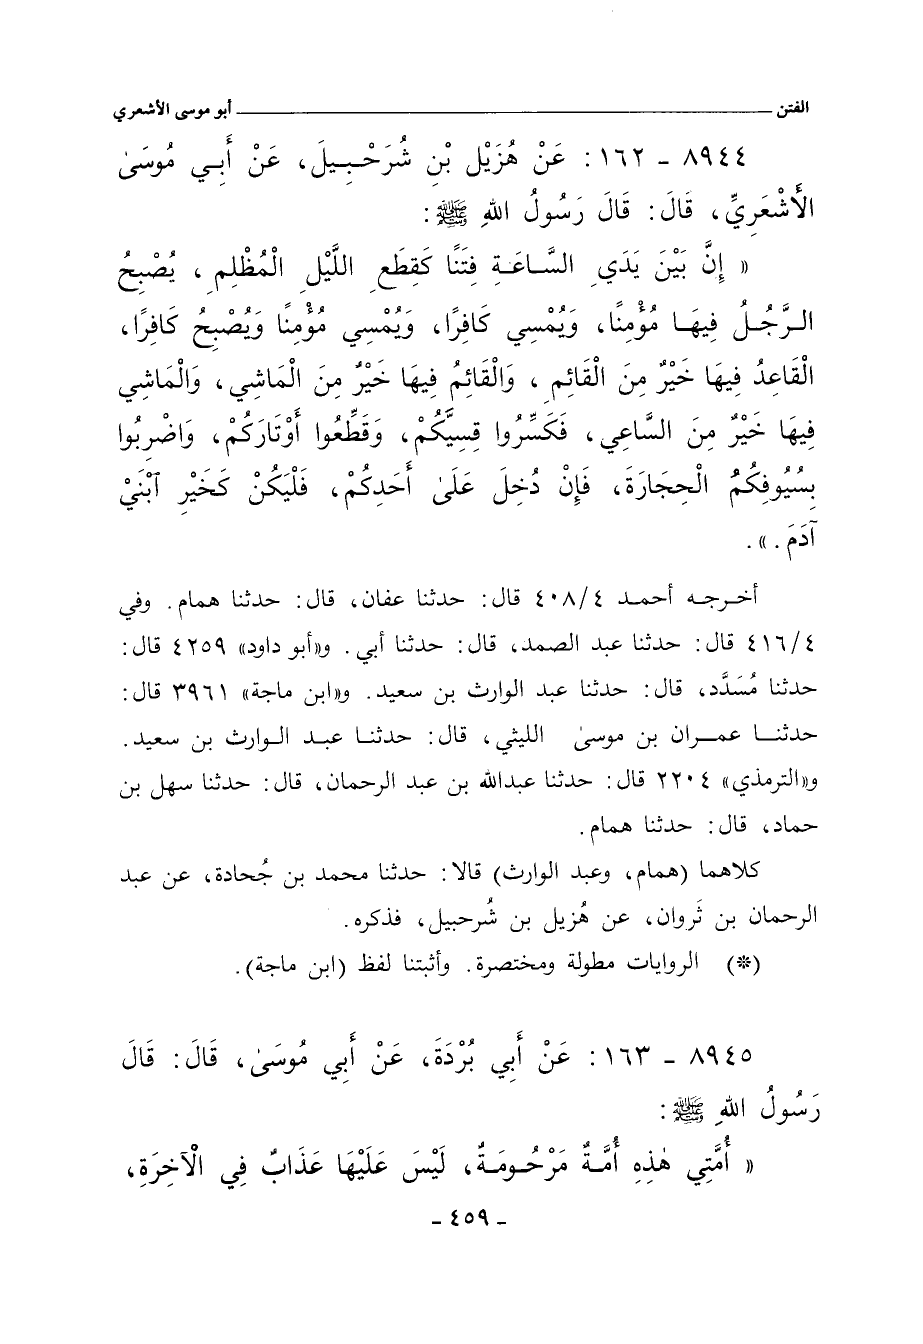 الفتن ـــــــــــــــــــــــــــــــــــــــــ أبو موسى الأشعري
٨٩٤٤ - ١٦٢ : عَنْ هُزَيْل بْنِ شُرَحْبِيلَ، عَنْ أَبِي مُوسَىٰ
الأَشْعَرِيِّ، قَالَ: قَالَ رَسُولُ اللهِ ﷺ:
« إِنَّ بَيْنَ يَدَيِ السَّاعَةِ فِتَنًا كَقِطَعِ اللَّيْلِ الْمُظْلِمِ، يُصْبِحُ
الرَّجُلُ فِيهَا مُؤْمِنًا، وَيُمْسِي كَافِرًا، وَيُمْسِي مُؤْمِنًا وَيُصْبِحُ كَافِرًا،
الْقَاعِدُ فِيهَا خَيْرٌ مِنَ الْقَائِمِ، وَالْقَائِمُ فِيهَا خَيْرٌ مِنَ الْمَاشِي، وَالْمَاشِي
فِيهَا خَيْرٌ مِنَ السَّاعِي، فَكَسِّرُوا قِسِيَّكُمْ، وَقَطِّعُوا أَوْتَارَكُمْ، وَاضْرِبُوا
بِسُيُوفِكُمُ الْحِجَارَةَ، فَإِنْ دُخِلَ عَلَىٰ أَحَدِكُمْ، فَلْيَكُنْ كَخَيْرِ آبْنَيْ
آدَمَ . ».
أخرجه أحمد ٤٠٨/٤ قال: حدثنا عفان، قال: حدثنا همام. وفي
٤١٦/٤ قال: حدثنا عبد الصمد، قال: حدثنا أبي. و«أبو داود» ٤٢٥٩ قال:
حدثنا مُسَدَّد، قال: حدثنا عبد الوارث بن سعيد. و«ابن ماجة» ٣٩٦١ قال:
حدثنا عمران بن موسىٰ الليثي، قال: حدثنا عبد الوارث بن سعيد.
و«الترمذي» ٢٢٠٤ قال: حدثنا عبدالله بن عبد الرحمان، قال: حدثنا سهل بن
حماد، قال: حدثنا همام.
كلاهما (همام، وعبد الوارث) قالا: حدثنا محمد بن جُحادة، عن عبد
الرحمان بن ثَروان، عن هُزيل بن شُرحبيل، فذكره.
(*) الروايات مطولة ومختصرة. وأثبتنا لفظ (ابن ماجة).
٨٩٤٥ - ١٦٣ : عَنْ أَبِي بُرْدَةَ، عَنْ أَبِي مُوسَىٰ، قَالَ: قَالَ
رَسُولُ اللهِ ﷺ:
« أُمَّتِي هٰذِهِ أُمَّةٌ مَرْحُومَةٌ، لَيْسَ عَلَيْهَا عَذَابٌ فِي الْآخِرَةِ،
- ٤٥٩ -